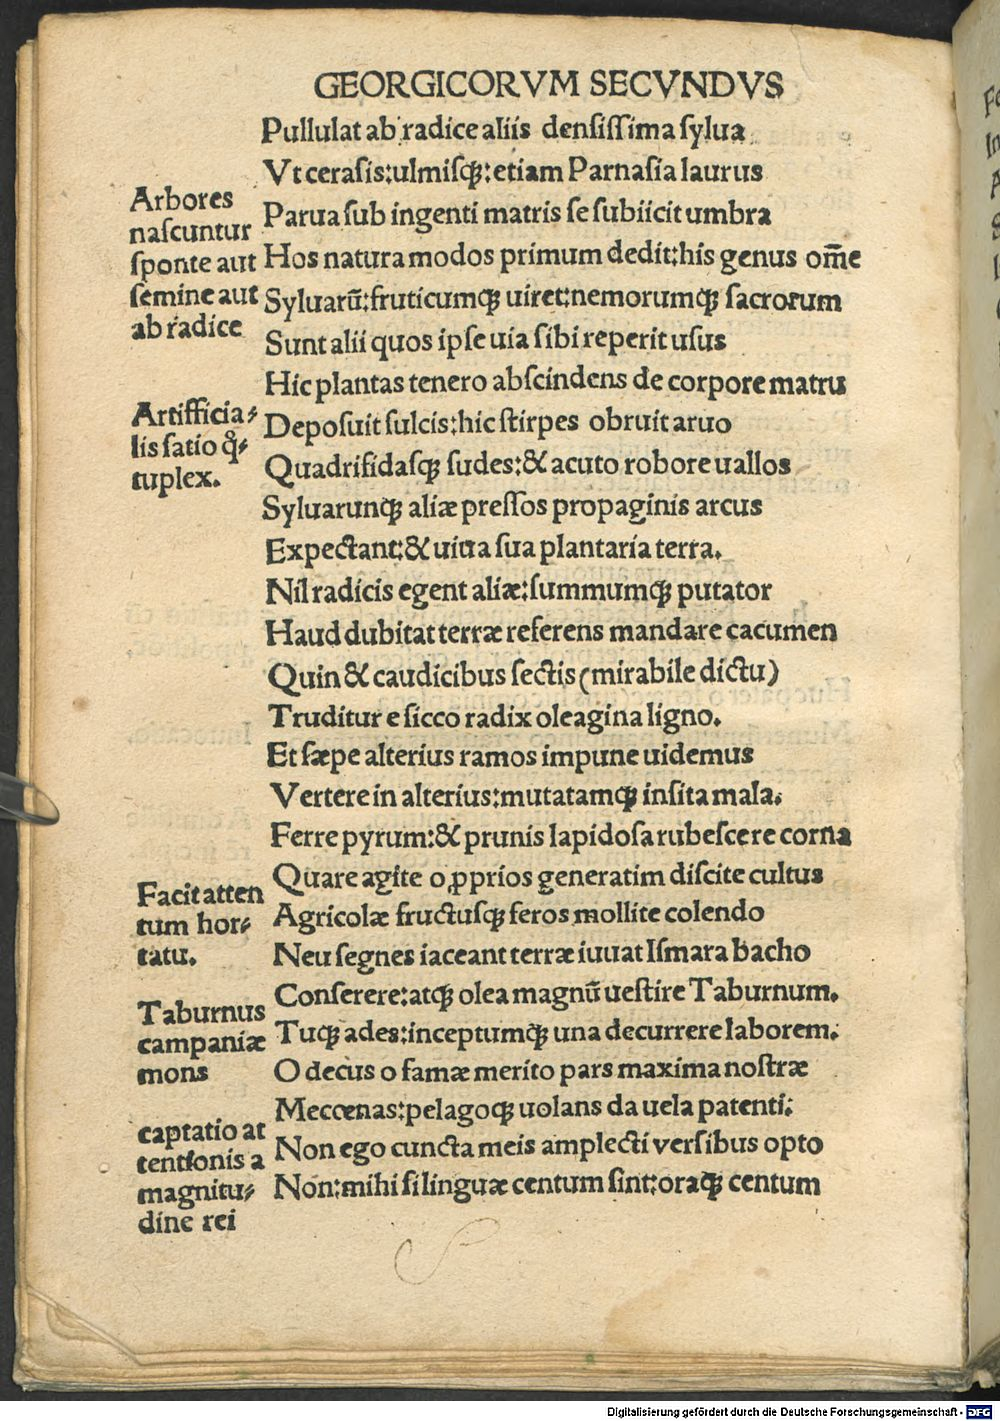 GEORGICORVM SECVNDVS
Pullulat ab radice aliis densissima sylua
Vt cerasis:ulmisqꝫ:etiam Parnasia laurus
Parua sub ingenti matris se subiicit umbra
Hos natura modos primum dedit:his genus om̅e
Syluarū:fruticumqꝫ uiret:nemorumqꝫ sacrorum
Sunt alii quos ipse uia sibi reperit usus
Hic plantas tenero abscindens de corpore matrū
Deposuit sulcis:hic stirpes obruit aruo
Quadrifidasqꝫ sudes:& acuto robore uallos
Syluarunqꝫ aliæ pressos propaginis arcus
Expectant:& uiua sua plantaria terra.
Nil radicis egent aliæ:summumqꝫ putator
Haud dubitat terræ referens mandare cacumen
Quin & caudicibus sectis (mirabile dictu)
Truditur e sicco radix oleagina ligno.
Et sæpe alterius ramos impune uidemus
Vertere in alterius:mutatamqꝫ insita mala.
Ferre pyrum:& prunis lapidosa rubescere corna
Quare agite o ꝓprios generatim discite cultus
Agricolæ fructusqꝫ feros mollite colendo
Neu segnes iaceant terræ iuuat Ismara bacho
Conserere:atqꝫ olea magnū uestire Taburnum.
Tuqꝫ ades:inceptumqꝫ una decurrere laborem.
O decus o famæ merito pars maxima nostræ
Mecœnas:pelagoqꝫ uolans da uela patenti.
Non ego cuncta meis amplecti versibus opto
Non:mihi si linguæ centum sint:oraqꝫ centum
Arbores
nascuntur
sponte aut
semine aut
ab radice
Artifficia⸗
lis satio
tuplex.
Facit atten
tum hor⸗
tatu.
Taburnus
campaniæ
mons
captatio at
tentionis a
magnitu⸗
dine rei
Digitalisierung gefördert durch die Deutsche Forschungsgemeinschaft - DFG